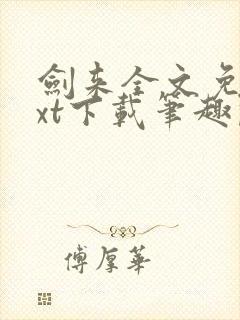 劍来全文免
xt下載筆趣
傅厚華